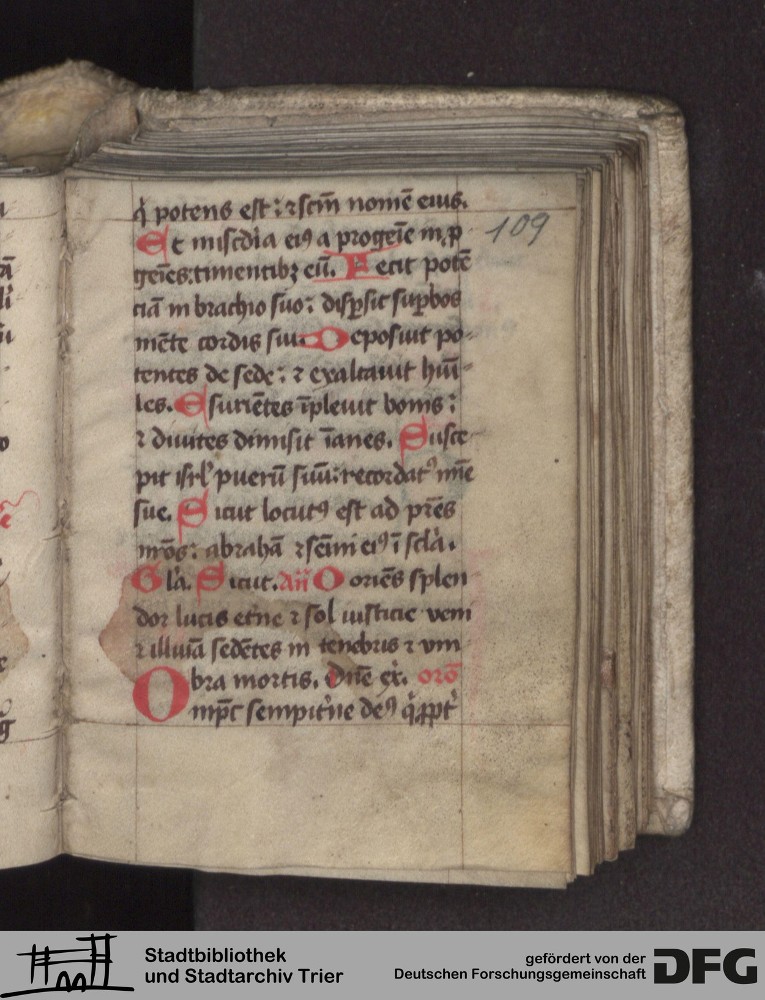 q̇ potens est : ⁊ scm̅ nomē eius.
109
Et mis̅cdia ei᷒ a progeīe in p̱
geīes : timentibꝫ eū. Fecit potē
ciā in brachio suo : disp̱sit sup̱bos
mēte cordis sui. Deposuit po-
tentes de sede : ⁊ exaltauit hūi-
les. Esuriētes īpleuit bonis :
⁊ diuites dimisit īanes. Susce-
pit isrl̕ puerū suū : recordat᷒ mīe
sue. Sicut locut᷒ est ad pr̅es
nr̅os : abrahā ⁊ sēini ei᷒ ī scl̕a.
Gl̕a. Sicut. Añ O oriēs splen
dor lucis et̕ne ⁊ sol iusticie veni
⁊ illuīa sedētes in tenebris ⁊ vm
bra mortis. Dn̅e ex̕. oro̅
Omp̅c sempit̕ne de᷒ q̇ ꝓpt̕
Stadtbibliothek
und Stadtarchiv Trier
gefördert von der
Deutschen Forschungsgemeinschaft
DFG